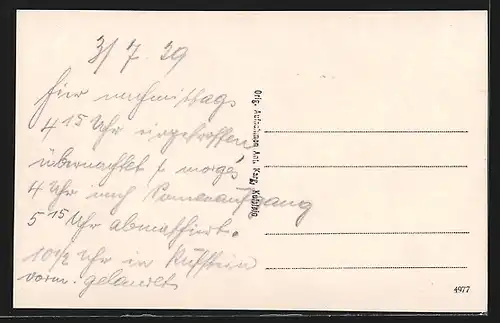 31/7.29
hier nachmittags
4 15 Uhr eingetroffen,
übernachtet & morgs
4 Uhr nach Sonnenaufgang
5 15 Uhr abmarschiert.
10 1/2 Uhr in Kufstein
vorm. gelandet
Orig. Aufnahmen Ant. Karg, Kufstein
4977